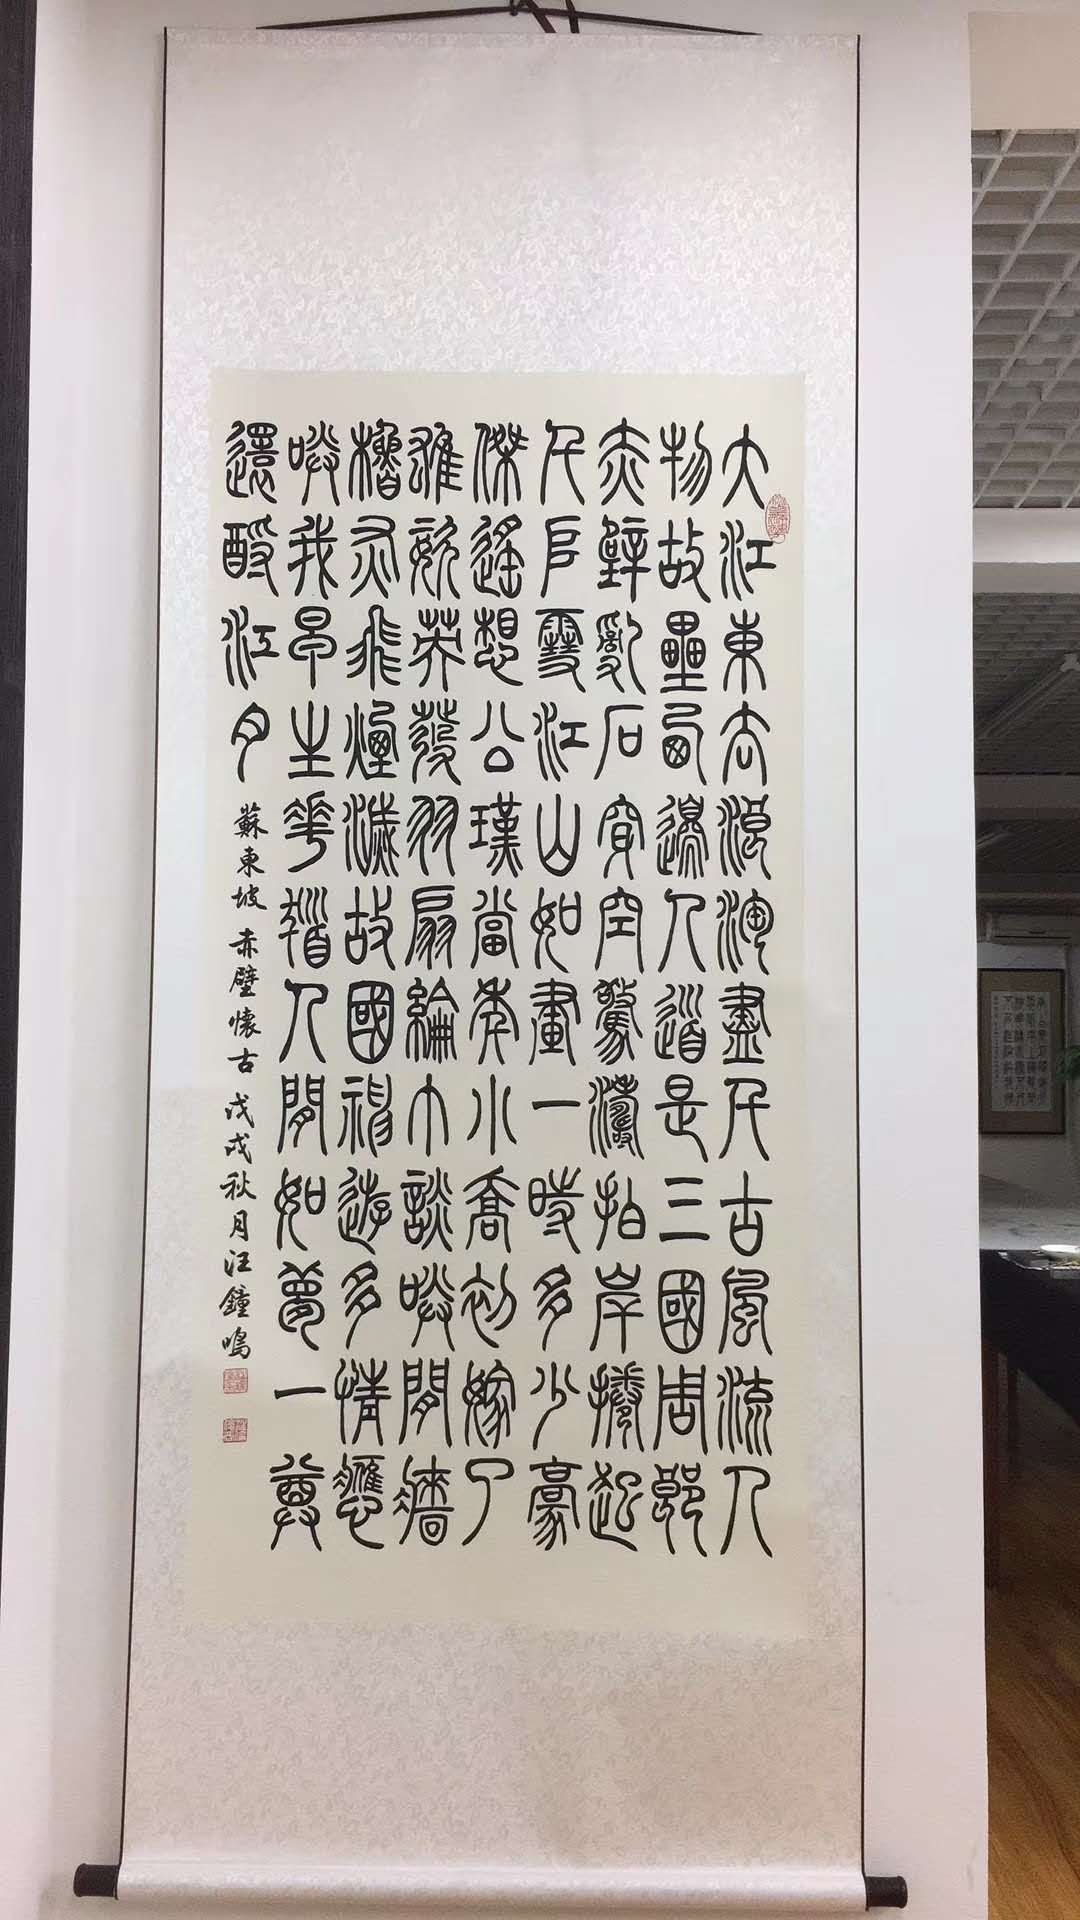 大江東去浪淘盡千古風流人
物故壘西邊人道是三國周郎
赤壁亂石穿空驚濤拍岸捲起
千堆雪江山如畫一時多少豪
傑遙想公瑾當年小喬初嫁了
雄姿英發羽扇綸巾談笑間檣
櫓灰飛煙滅故國神遊多情應
笑我早生華髮人間如夢一尊
還酹江月
蘇東坡 赤壁懷古 戊戌秋月汪鐘鳴